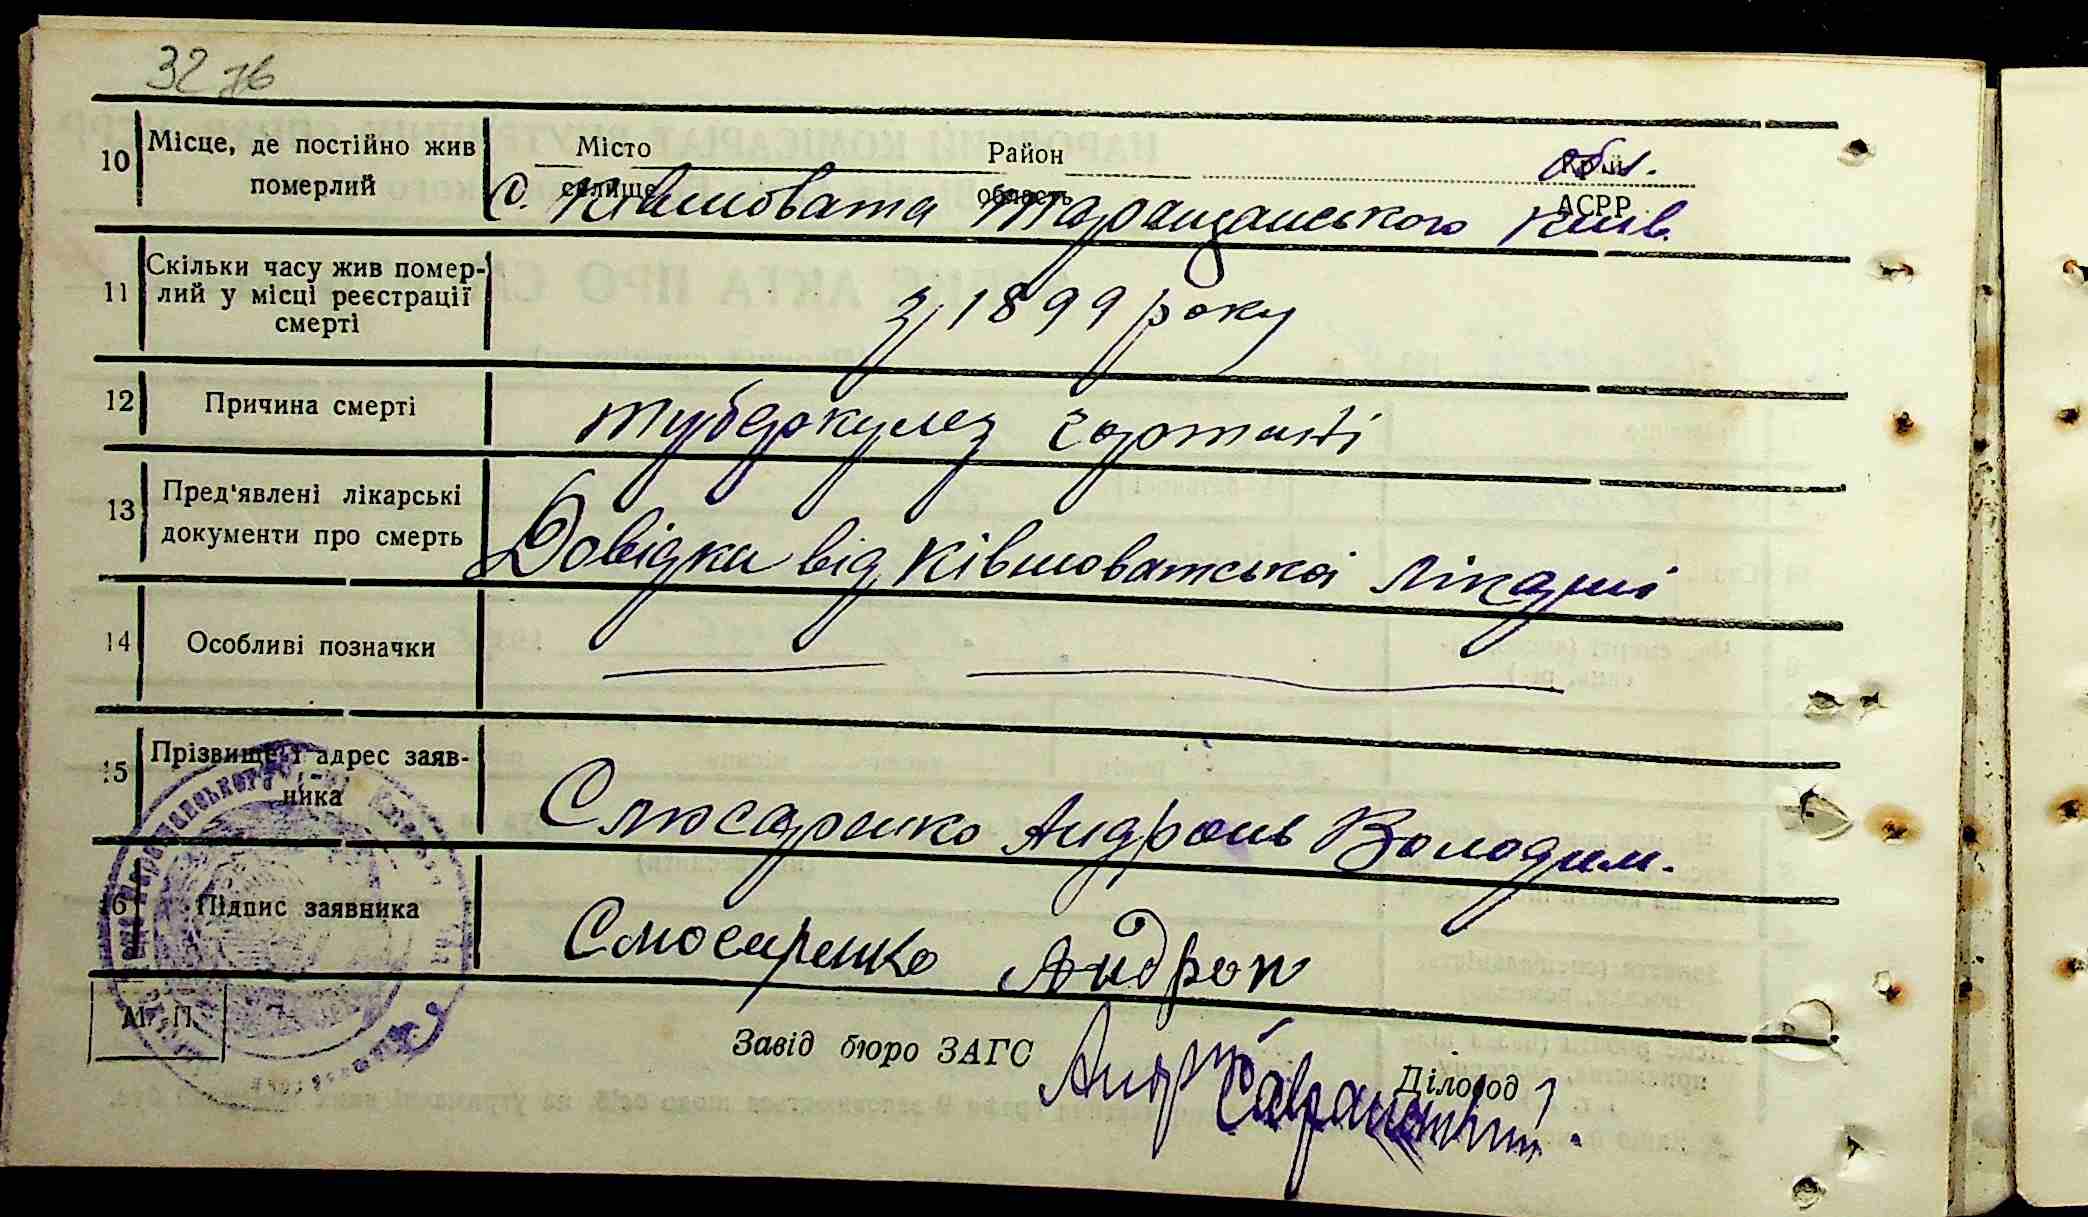 32 зв
10 Місце, де постійно жив померлий
Місто селище Район область Край АСРР
обл.
с. Ківшовата Таращанського Київ.
11 Скільки часу жив помер-
лий у місці реєстрації
смерті
з 1899 року
12 Причина смерті
туберкульоз гортані
13 Пред'явлені лікарські
документи про смерть
Довідка від Ківшоватської лікарні
14 Особливі позначки
15 Прізвище і адрес заяв-
ника
Слюсаренко Андронь Володим.
16 Підпис заявника
Слюсаренко Андрон
М. П.
Завід бюро ЗАГС
Діловод